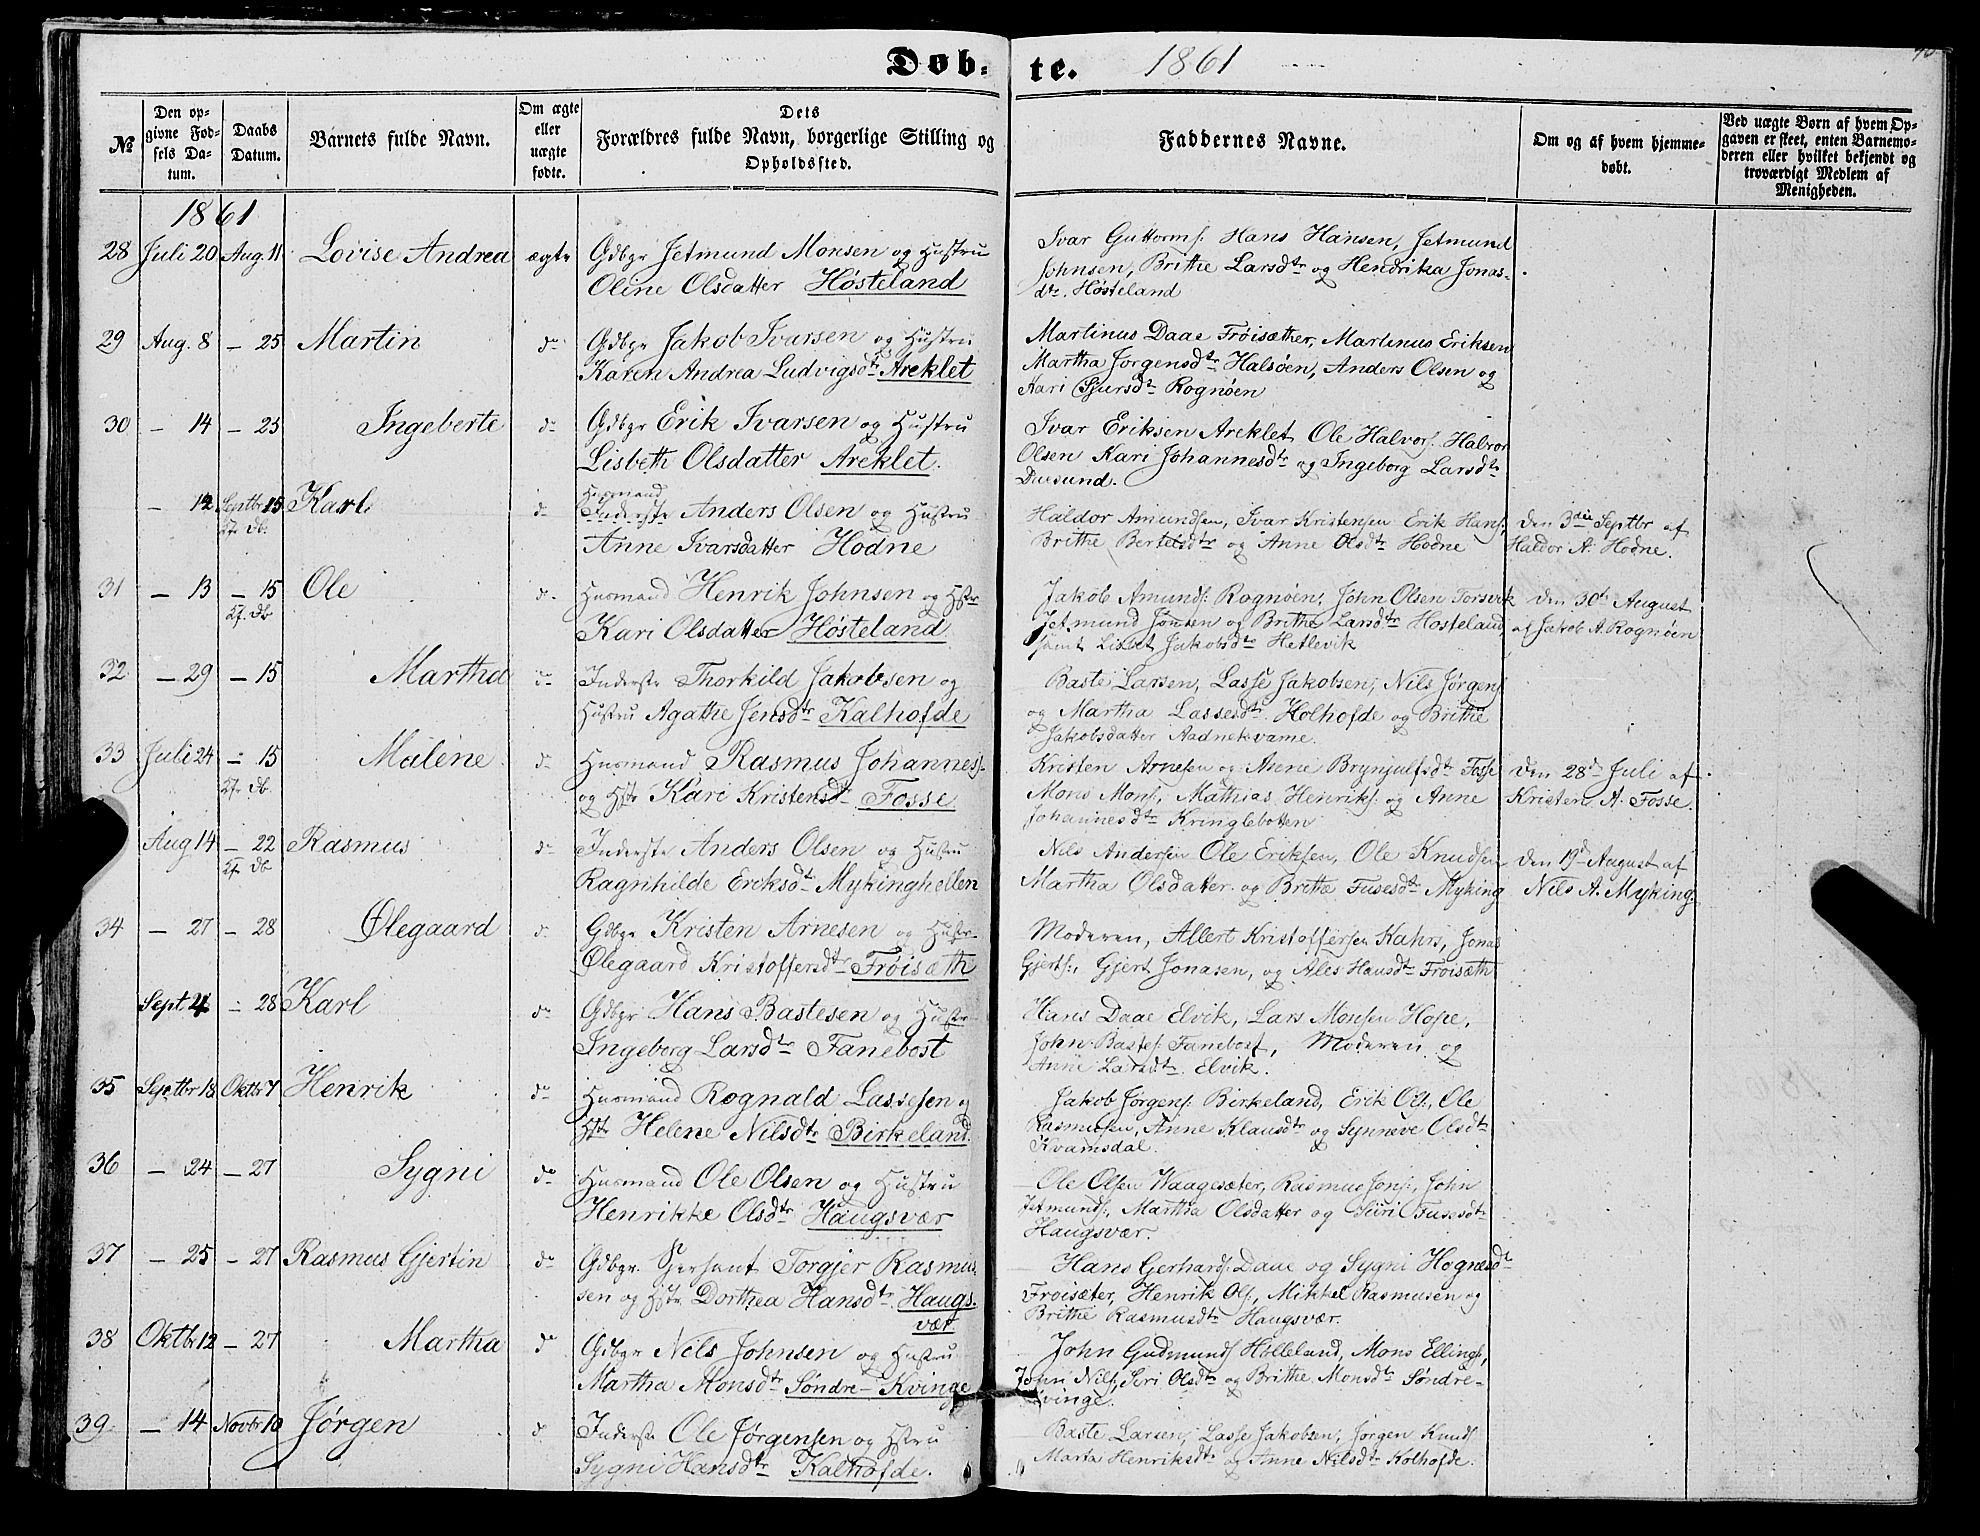 Døb-te. 1861
№
Den opgivne Fødsels Datum.
Daabs Datum.
Barnets fulde Navn.
Om ægte eller uægte fødte.
Dets Forældres fulde Navn, borgerlige Stilling og Opholdssted.
Faddernes Navne.
Om og af hvem hjemmedøbt.
Ved uægte Børn af hvem Opgaven er skeet, enten Barnemoderen eller hvilket bekjendt og troværdigt Medlem af Menigheden.
1861
28 Juli 20 Aug. 11 Lovise Andrea ægte Gdbgr Jetmund Monsen og Hustru
Oline Olsdatter Høsteland
Ivar Guttorms. Hans Hansen, Jetmund
Johnsen, Brithe Larsdtr og Hendrika Jonas-
dtr. Høsteland
29 Aug. 8 — 25 Martin do Gdbgr Jakob Ivarsen og Hustru
Karen Andrea Ludvigsdtr Areklet
Martinus Daae Frøisæther, Martinus Eriksen
Martha Jørgensdtr Halsøen, Anders Olsen og
Kari Sjursdtr Rognøen
30 — 14 — 25 Ingeberte do Gdbgr Erik Ivarsen og Hustru
Lisbeth Olsdatter Areklet.
Ivar Eriksen Areklet, Ole Halvors. Halvor
Olsen Kari Johannesdtr og Ingeborg Larsdtr
Duesund.
— 12 Septbr 15 Karl do Husmand
Inderste Anders Olsen og Hustru
Anne Ivarsdatter Hodne
Haldor Amundsen, Ivar Kristensen Erik Hans.
Brithe Bertelsdtr og Anne Olsdtr Hodne
Den 3die Septbr af
Haldor A. Hodne.
31 — 13 — 15 Ole do Husmand Henrik Johnsen og Hstr
Kari Olsdatter Høsteland
Jakob Amunds. Rognøen, John Olsen Torsvik
Jetmund Jonsen og Brithe Larsdtr Høsteland
samt Lisbet Jakobsdtr Hetlevik
Den 30te August
af Jakob A. Rognøen
32 — 29 — 15 Martha do Inderste Thorkild Jakobsen og
Hustru Agathe Jensdtr Kalhofde
Baste Larsen, Lasse Jakobsen, Nils Jørgens.
og Martha Lassesdtr Holhofde og Brithe
Jakobsdatter Aadnekvame.
33 Juli 24 — 15 Malene do Husmand Rasmus Johannes.
og Hstr Kari Kristensdtr Fosse.
Kristen Arnesen og Anne Brynjulfsdtr Fosse
Mons Mons., Mathias Henriks. og Anne
Johannesdtr Kringlebotten
Den 28de Juli af
Kristen A. Fosse.
Aug 14 — 22 Rasmus do Inderste Anders Olsen og Hustru
Ragnhilde Eriksdtr Mykinghellen
Nils Andersen Ole Eriksen, Ole Knudsen
Martha Olsdatter og Brithe Fusesdtr Myking
Den 19de August af
Nils A. Myking.
34 — 27 — 28 Ølegaard do Gdbgr Kristen Arnesen og Hustr
Ølegaard Kristoffersdtr Frøisæth
Moderen, Allert Kristoffersen Kahrs, Jonas
Gjerts., Gjert Jonasen, og Ales Hansdtr Frøisæth
Sept. 4 — 28 Karl do Gdbgr Hans Bastesen og Hustr
Ingeborg Larsdtr Fanebost
Hans Daae Elvik, Lars Monsen Hope,
John Bastes. Fanebost, Moderen og
Anne Larsdtr. Elvik.
35 Septbr 18 Oktbr 7 Henrik do Husmand Rognald Lassesen og
Hstr Helene Nilsdtr Birkeland.
Jakob Jørgens. Birkeland, Erik Ols., Ole
Rasmusen, Anne Klausdtr og Synneve Olsdtr
Kvamsdal.
36 — 24 — 27 Sygni do Husmand Ole Olsen og Hustru
Henrikke Olsdtr Haugsvær
Ole Olsen Waagesæter, Rasmus Jons., John
Jetmunds., Martha Olsdatter og Siiri Fusesdtr
Haugsvær.
37 — 25 — 27 Rasmus Gjertin do Gdbgr. Sersant Torgjer Rasmu-
sen og Hstr Dorthea Hansdtr Haugs-
vær.
Hans Gerhards. Daae og Sygni Hognesdtr
Frøisæter, Henrik Ols., Mikkel Rasmusen og
Brithe Rasmusdtr Haugsvær.
38 Oktbr 12 — 27 Martha do Gdbgr Nils Johnsen og Hustru
Martha Monsdtr Søndre-Kvinge
John Gudmunds Helleland, Mons Ellings.,
John Nils., Siri Olsdtr og Brithe Monsdtr Søndre-
Kvinge.
39 — 14 Novbr 10 Jørgen do Inderste Ole Jørgensen og Hstru
Sygni Hansdtr Kalhofde.
Baste Larsen, Lasse Jakobsen, Jørgen Knuds
Marta Henriksdtr og Anne Nilsdtr Kolhofde.